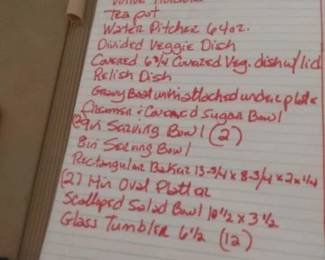 Tea pot
Water Pitcher 64oz.
Divided Veggie Dish
Covered 6 3/4 Covered Veg. dish w/lid
Relish Dish
Gravy Boat with attached under plate
Creamer & Covered Sugar Bowl
9in Serving Bowl (2)
8in Serving Bowl
Rectangular Baker 13-3/4 x 8-3/4 x 2 x 1/4
(2) 14in Oval Platter
Scalloped Salad Bowl 10 1/2 x 3 1/2
Glass Tumbler 6 1/2 (12)